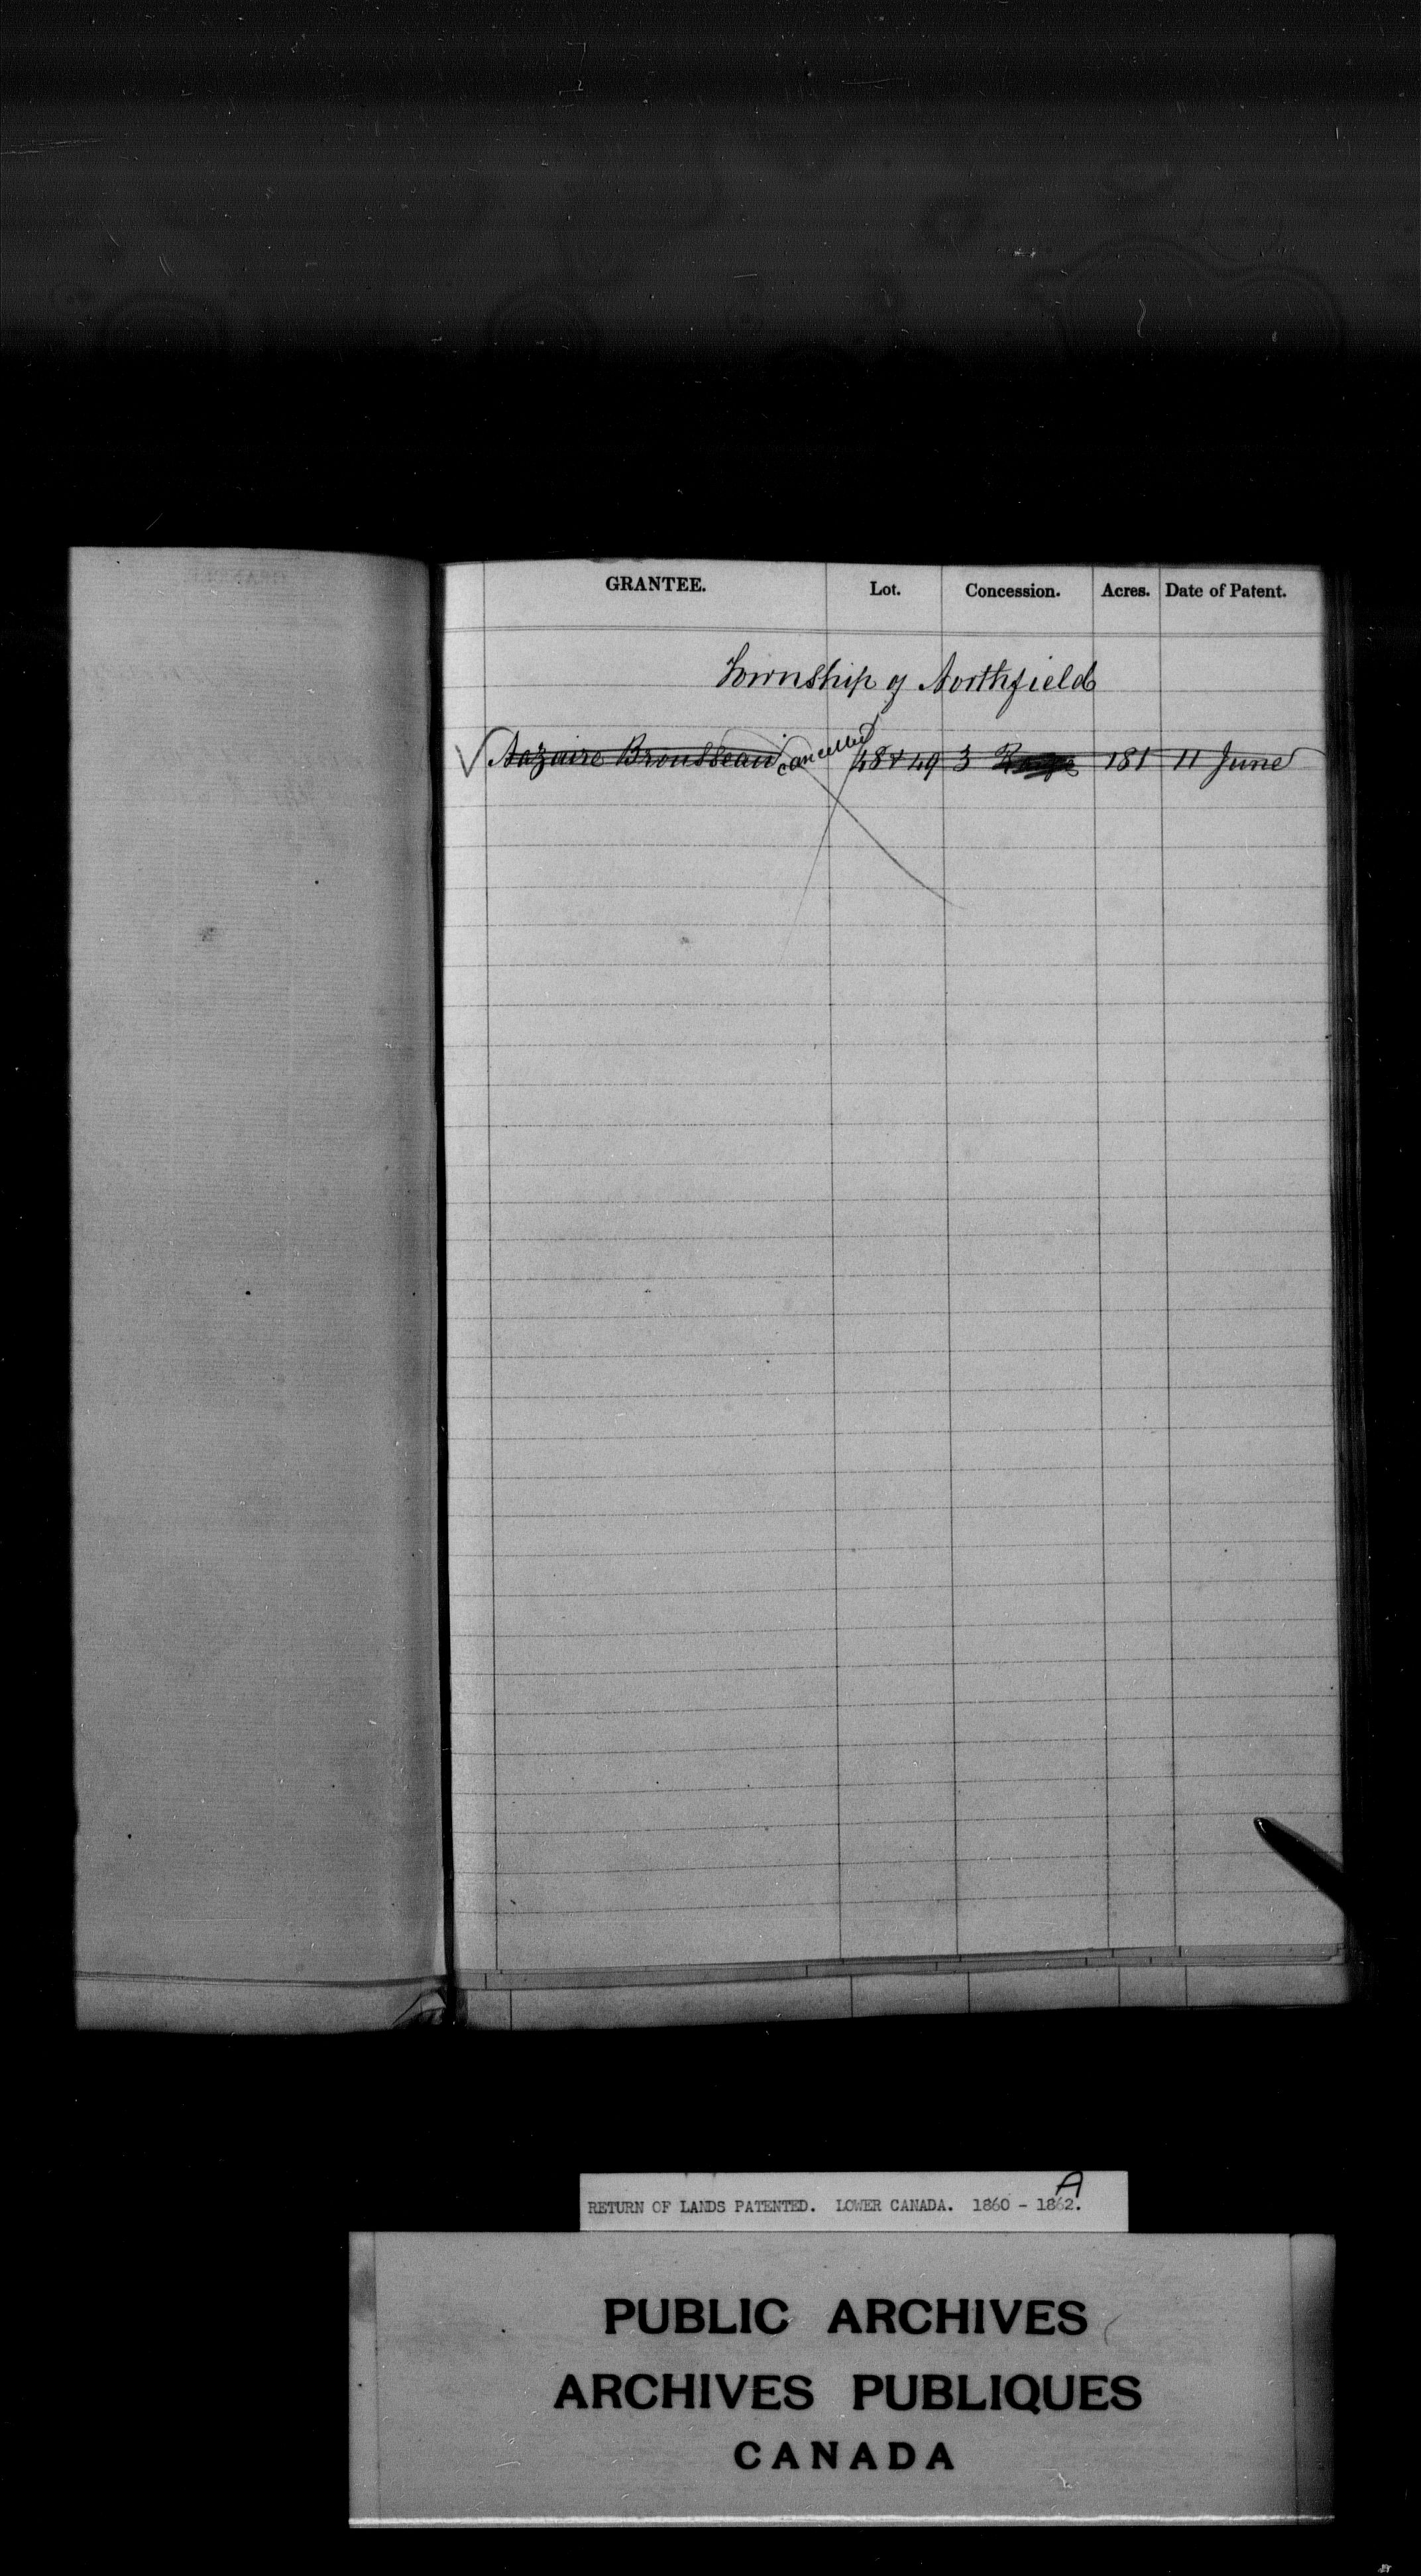 GRANTEE. Lot. Concession. Acres. Date of Patent.
Township of Northfield
Nazaire Brousseau cancelled 48 & 49 3 Range 181 11 June
A
RETURN OF LANDS PATENTED. LOWER CANADA. 1860 - 1862.
PUBLIC ARCHIVES
ARCHIVES PUBLIQUES
CANADA